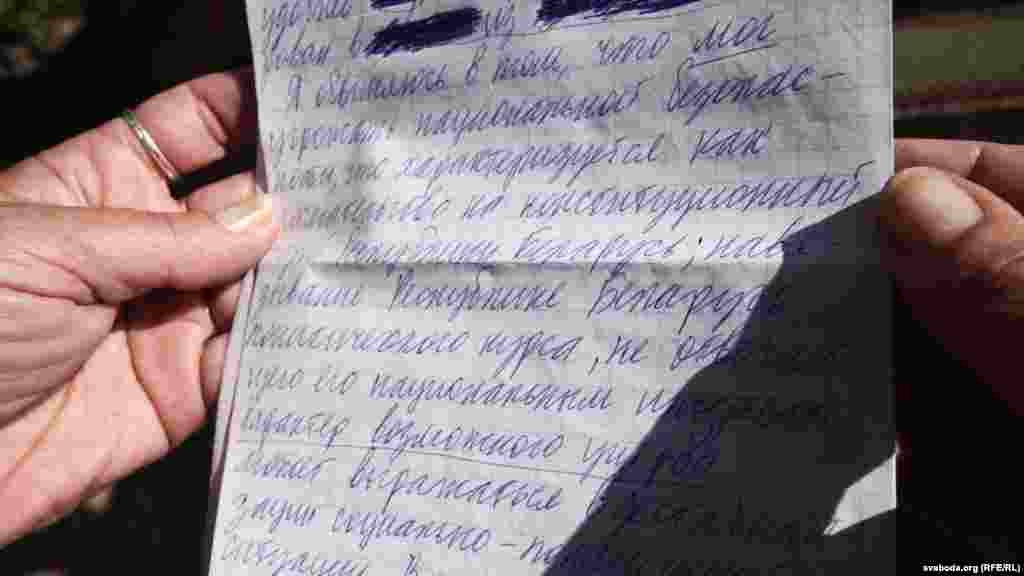 в из
Я обвиняюсь в том, что мог
национальной безопас-
ности, что характеризуется как
на конституционный
Республики Беларусь; навя-
зывание Республике Беларусь
политического курса, не отвечаю-
щего его национальным интересам
характер возможного ущерба
может выражаться в дестабили-
зации социально-
ситуации в
svaboda.org (RFE/RL)